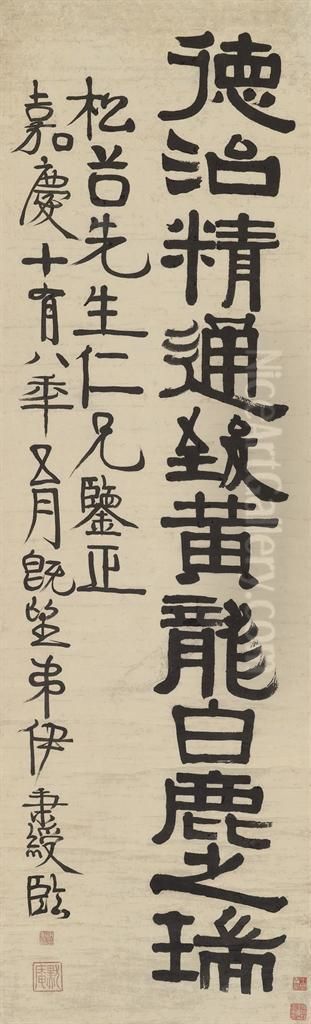 德治精通致黄龍白鹿之瑞
松谷先生仁兄鑒正
嘉慶十有八年五月既望弟伊秉綬臨